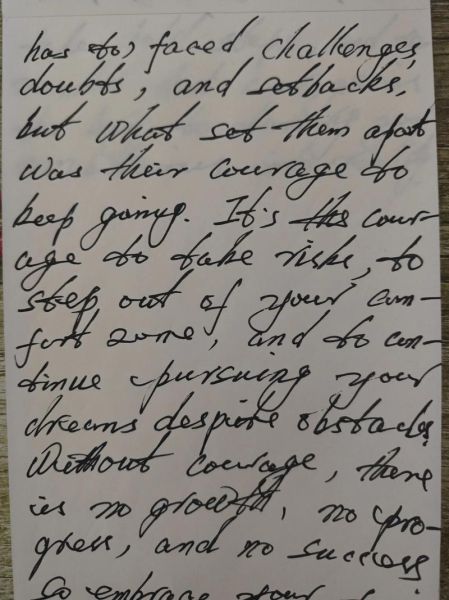 has to, faced challenges,
doubts, and setbacks,
but what set them apart
was their courage to
keep going. It's the cour-
age to take risks, to
step out of your com-
fort zone, and to con-
tinue pursuing your
dreams despite obstacles
Without courage, there
is no growth, no pro-
gress, and no success
So embrace your